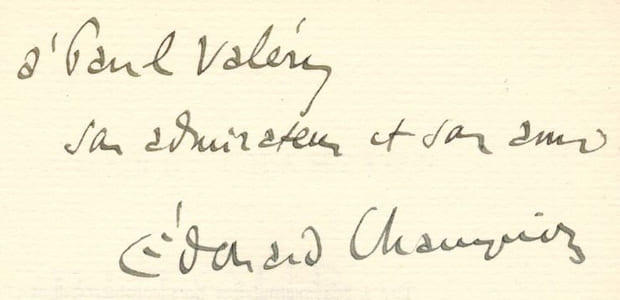 à Paul Valéry
son admirateur et son ami
Édouard Champion